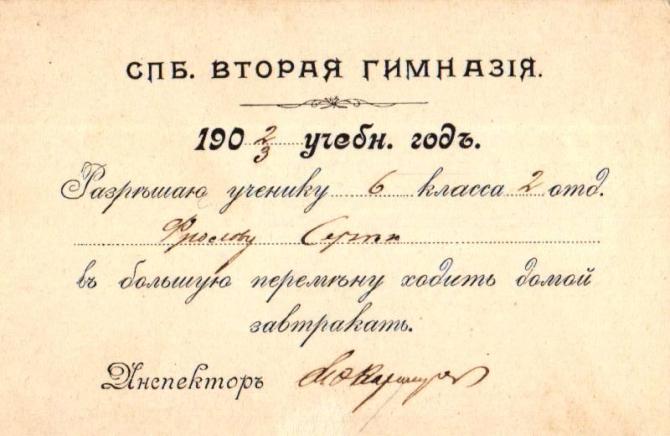 СПБ. ВТОРАЯ ГИМНАЗІЯ.
190 2/3 учебн. годъ.
Разрѣшаю ученику 6 класса 2 отд.
Фролову Сергѣю
въ большую перемѣну ходить домой
завтракать.
Инспекторъ